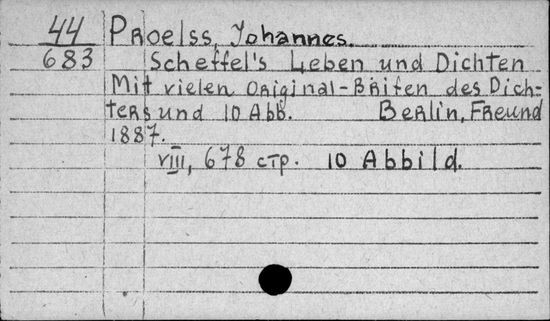 44 Proelss, Johannes.
683 Scheffel's Leben und Dichten
Mit vielen Original-Briefen des Dich-
ters und 10 Abb. Berlin, Freund
1887.
VIII, 678 стр. 10 Abbild.